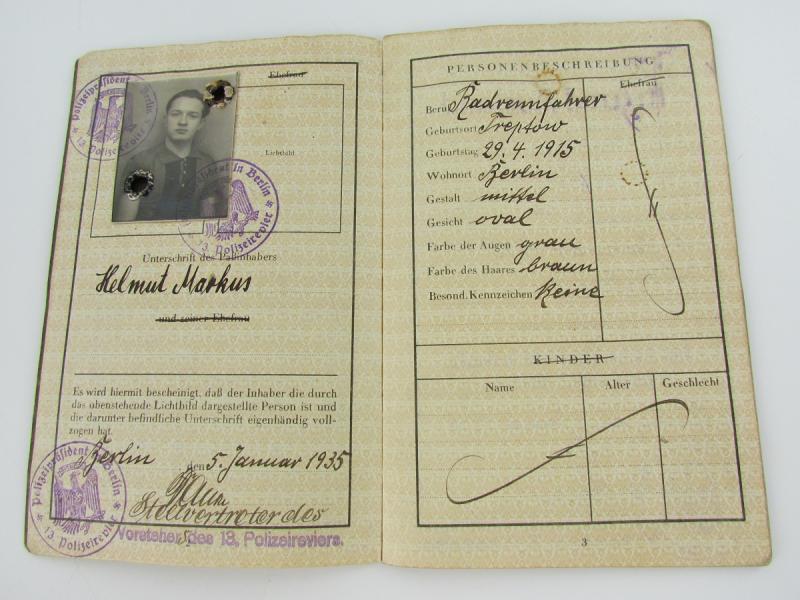 Ehefrau
Lichtbild
Polizeipräsident in Berlin
* 13. Polizeirevier *
Polizeipräsident in Berlin
* 13. Polizeirevier *
Unterschrift des Paßinhabers
Helmut Markus
und seiner Ehefrau
Es wird hiermit bescheinigt, daß der Inhaber die durch
das obenstehende Lichtbild dargestellte Person ist und
die darunter befindliche Unterschrift eigenhändig voll-
zogen hat.
Berlin, den 5. Januar 1935
Stellvertreter des
Vorsteher des 13. Polizeireviers.
Polizeipräsident in Berlin
* 13. Polizeirevier *
PERSONENBESCHREIBUNG
Ehefrau
Beruf Radrennfahrer
Geburtsort Treptow
Geburtstag 29. 4. 1915
Wohnort Berlin
Gestalt mittel
Gesicht oval
Farbe der Augen grau
Farbe des Haares braun
Besond. Kennzeichen Keine
KINDER
Name Alter Geschlecht
3